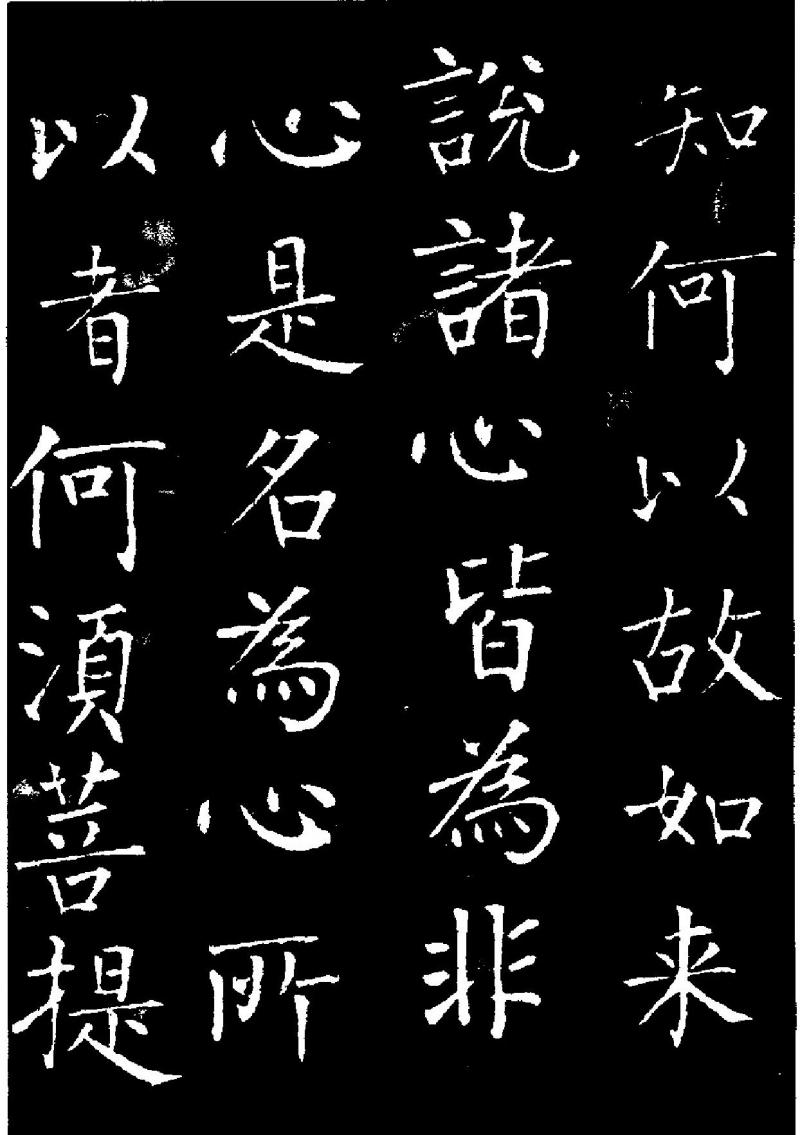 知何以故如来
說諸心皆為非
心是名為心所
以者何須菩提